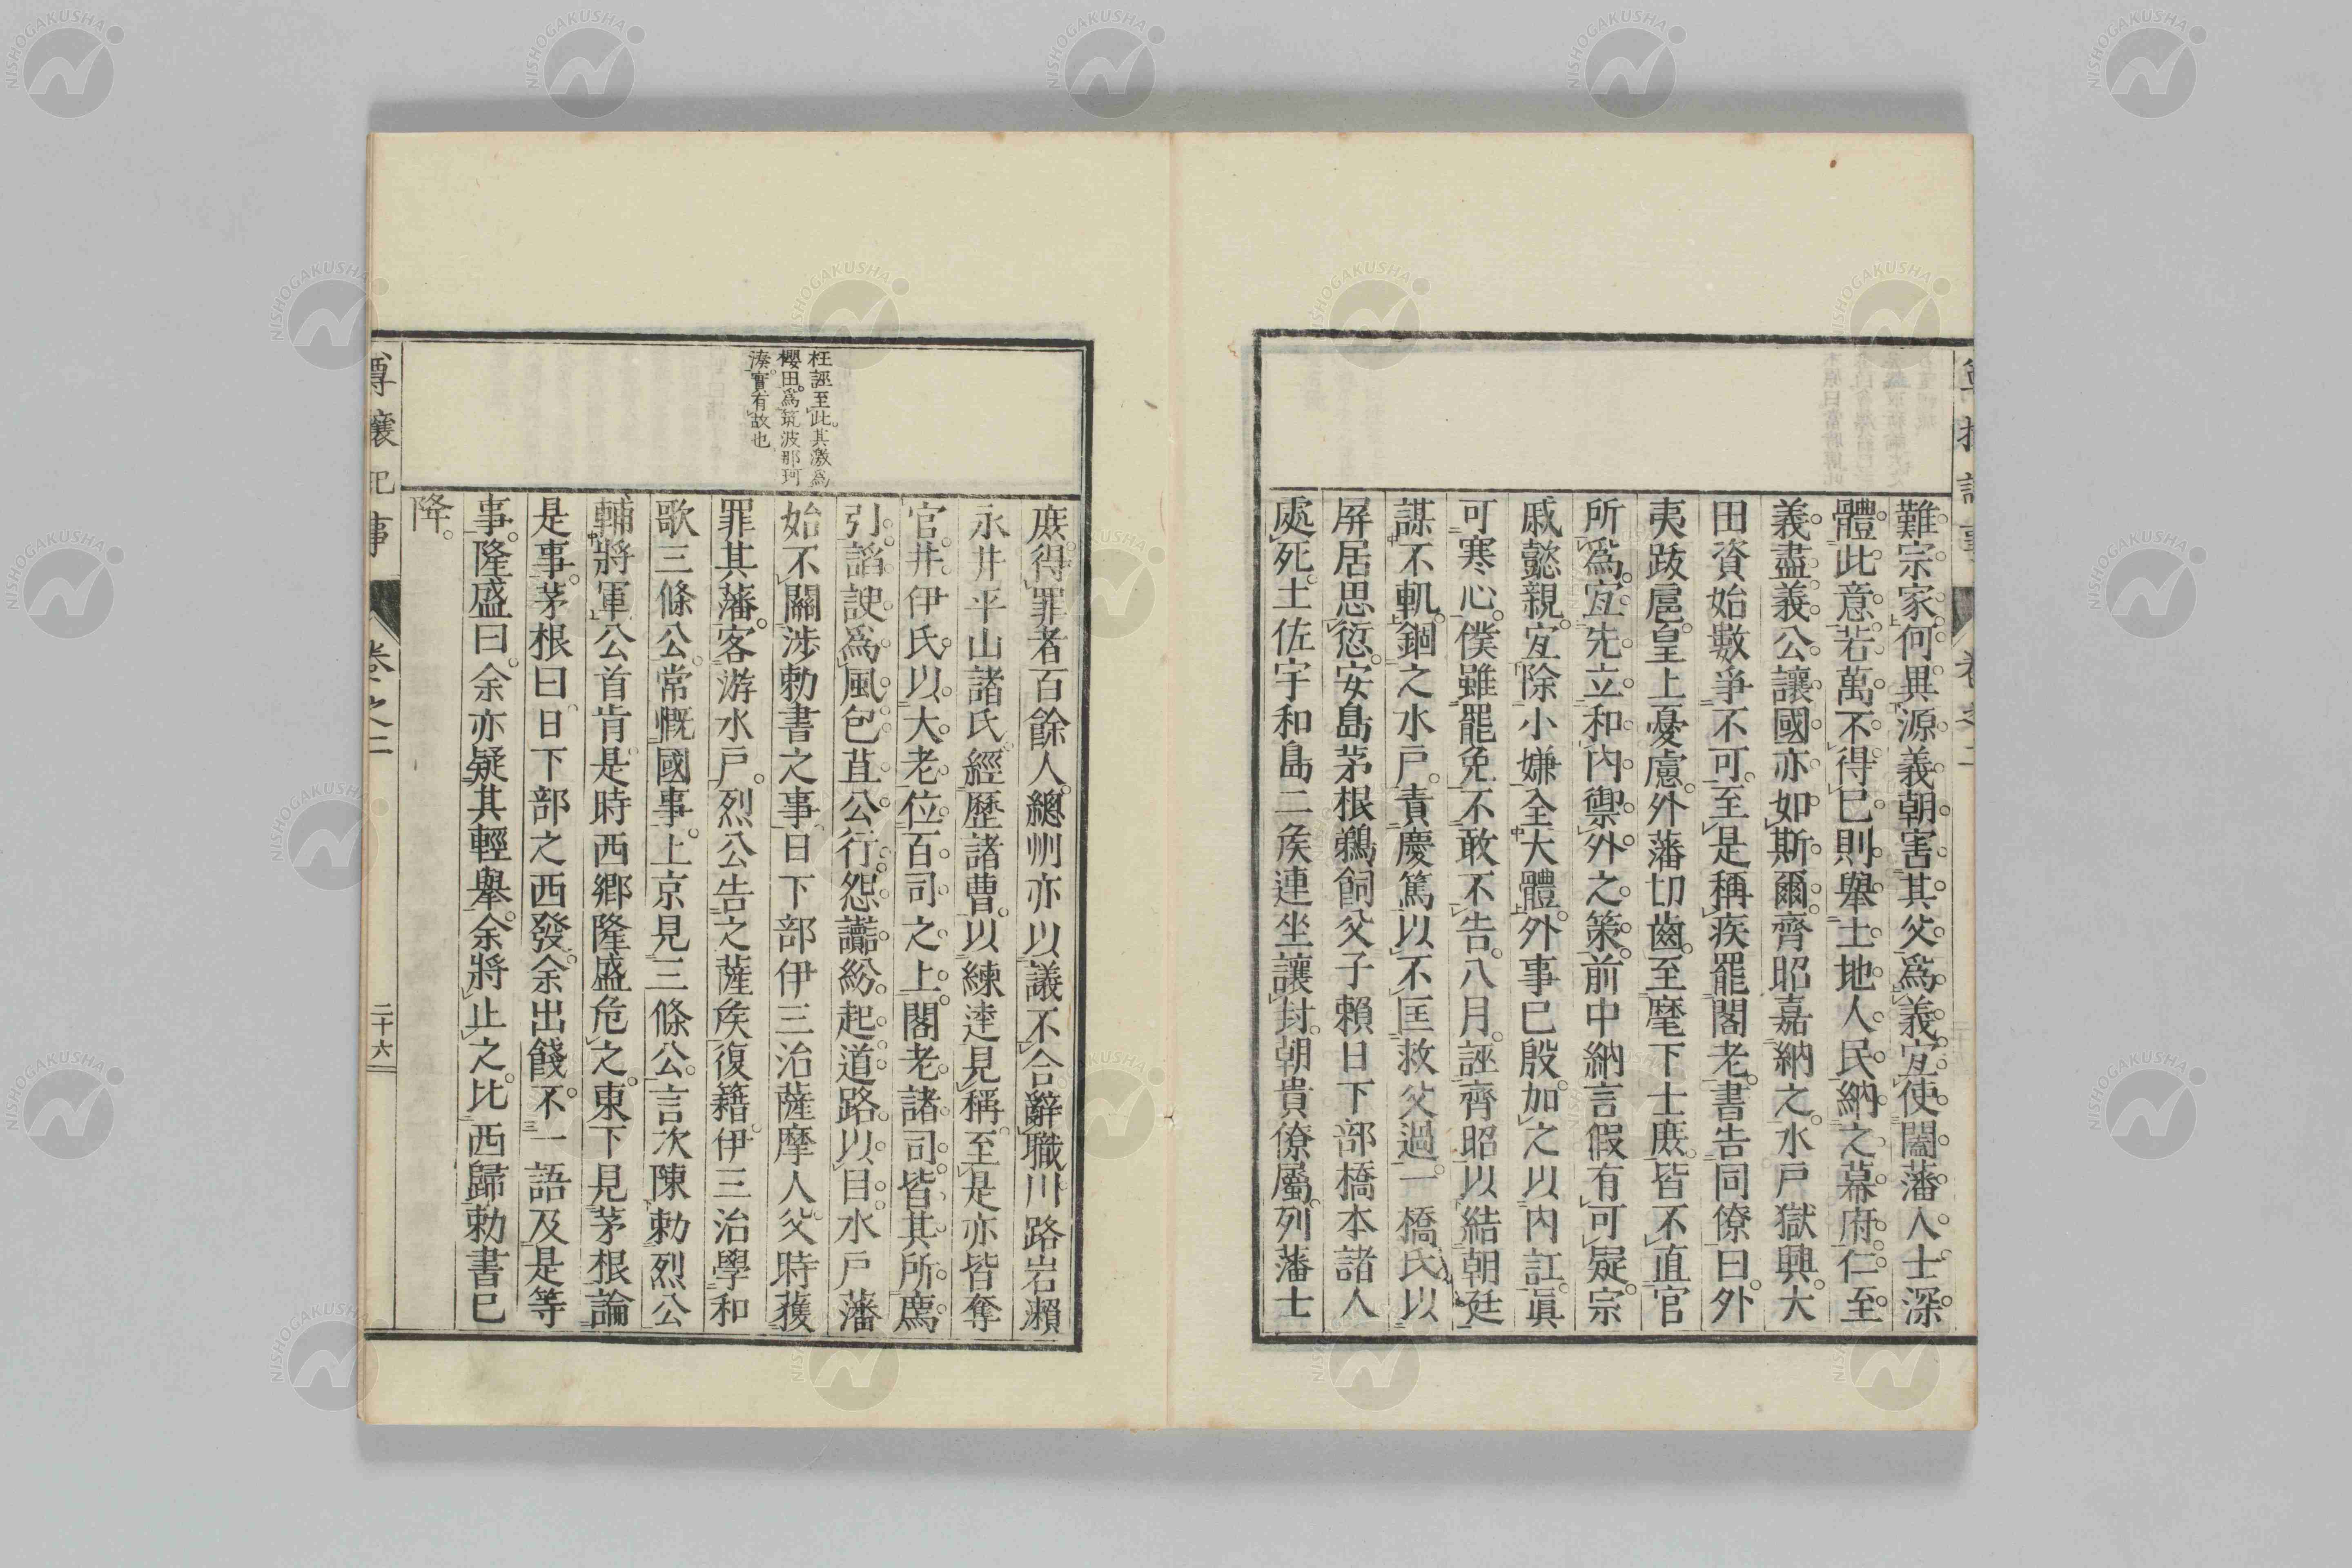 難宗家何異源義朝害其父爲義宐使闔藩人士深
體此意若萬不得已則舉土地人民納之幕府仁至
義盡義公讓國亦如斯爾齊昭嘉納之水戶獄興大
田資始數爭不可至是稱疾罷閣老書告同僚曰外
夷跋扈皇上憂慮外藩切齒至麾下士庶皆不直官
所爲宐先立和內禦外之策前中納言假有可疑宗
戚懿親宐除小嫌全大體外事已殷加之以內訌眞
可寒心僕雖罷免不敢不告八月誣齊昭以結朝廷
謀不軌錮之水戶責慶篤以不匡救父過一橋氏以
屏居思愆安島茅根鵜飼父子賴日下部橋本諸人
處死土佐宇和島二矦連坐讓封朝貴僚屬列藩士
庶得罪者百餘人總州亦以議不合辭職川路岩瀨
永井平山諸氏經歷諸曹以練達見稱至是亦皆奪
官井伊氏以大老位百司之上閣老諸司皆其所薦
引諂諛爲風包苴公行怨讟紛起道路以目水戶藩
始不關涉勅書之事日下部伊三治薩摩人父時獲
罪其藩客游水戶烈公告之薩矦復籍伊三治學和
歌三條公常慨國事上京見三條公言次陳勅烈公
輔將軍公首肯是時西鄉隆盛危之東下見茅根論
是事茅根曰日下部之西發余出餞不一語及是等
事隆盛曰余亦疑其輕舉余將止之比西歸勅書已
降
枉誣至此其激爲
櫻田爲筑波那珂
湊實有故也
尊攘紀事
卷之二
二十六